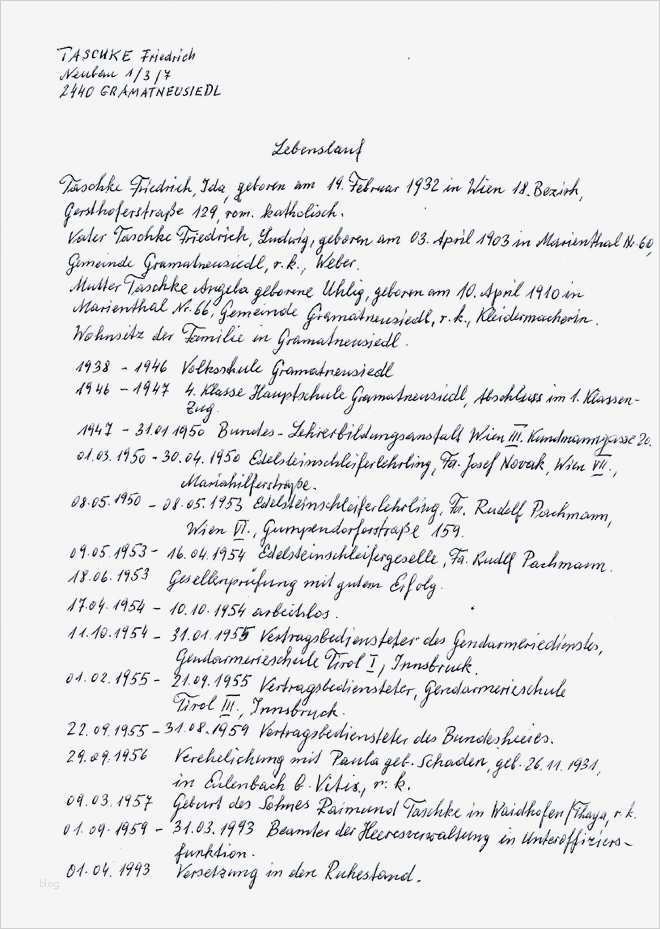 TASCHKE Friedrich
Neubau 1/3/7
2440 GRAMATNEUSIEDL
Lebenslauf
Taschke Friedrich, Ida, geboren am 14. Februar 1932 in Wien 18. Bezirk,
Gersthoferstraße 129, röm. katholisch.
Vater Taschke Friedrich, Ludwig, geboren am 03. April 1903 in Marienthal Nr. 60,
Gemeinde Gramatneusiedl, r. k., Weber.
Mutter Taschke Angela geborene Uhlig, geboren am 10. April 1910 in
Marienthal Nr. 66, Gemeinde Gramatneusiedl, r. k., Kleidermacherin.
Wohnsitz der Familie in Gramatneusiedl.
1938 - 1946 Volksschule Gramatneusiedl
1946 - 1947 4. Klasse Hauptschule Gramatneusiedl, Abschluss im 1. Klassen-
Zug.
1947 - 31.01.1950 Bundes-Lehrerbildungsanstalt Wien III. Kundmanngasse 20.
01.03.1950 - 30.04.1950 Edelsteinschleiferlehrling, Fa. Josef Novak, Wien VII.,
Mariahilferstraße.
08.05.1950 - 08.05.1953 Edelsteinschleiferlehrling, Fa. Rudolf Pachmann,
Wien VI., Gumpendorferstraße 159.
09.05.1953 - 16.04.1954 Edelsteinschleifergeselle, Fa. Rudlf Pachmann.
18.06.1953 Gesellenprüfung mit gutem Erfolg.
17.04.1954 - 10.10.1954 arbeitslos.
11.10.1954 - 31.01.1955 Vertragsbediensteter des Gendarmeriedienstes,
Gendarmerieschule Tirol I, Innsbruck.
01.02.1955 - 21.09.1955 Vertragsbediensteter, Gendarmerieschule
Tirol III., Innsbruck.
22.09.1955 - 31.08.1959 Vertragsbediensteter des Bundesheeres.
29.09.1956 Verehelichung mit Paula geb. Schaden, geb. 26.11.1931,
in Eulenbach b. Vitis, r. k.
09.03.1957 Geburt des Sohnes Raimund Taschke in Waidhofen/Thaya, r. k.
01.09.1959 - 31.03.1993 Beamter der Heeresverwaltung in Unteroffiziers-
funktion.
01.04.1993 Versetzung in den Ruhestand.
blog